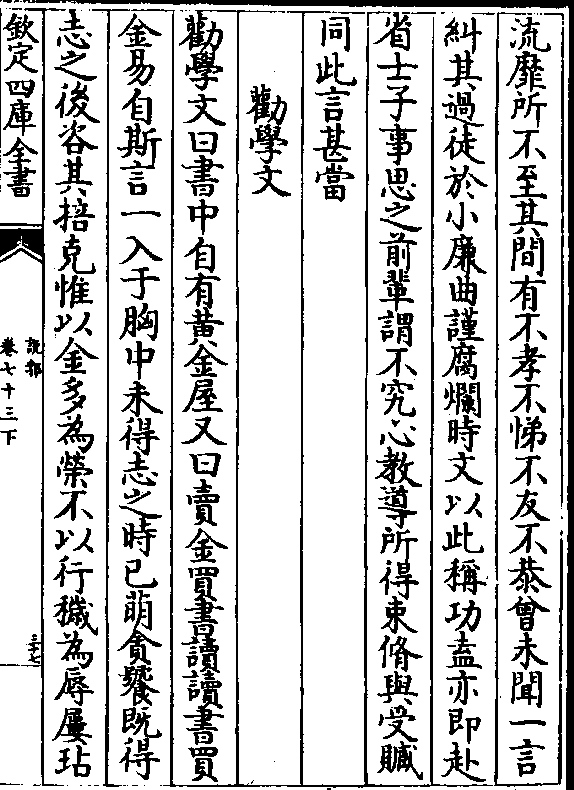 流靡所不至其間有不孝不悌不友不恭曾未聞一言
糾其過徒於小廉曲謹腐爛時文以此稱功盍亦即赴
省士子事思之前輩謂不究心教導所得束脩與受贓
同此言甚當
勸學文
勸學文曰書中自有黄金屋又曰賣金買書讀讀書買
金易自斯言一入于胸中未得志之時已萌貪饕既得
志之後恣其掊克惟以金多為榮不以行穢為辱屢玷
欽定四庫全書
說郛
卷七十三下
三十七